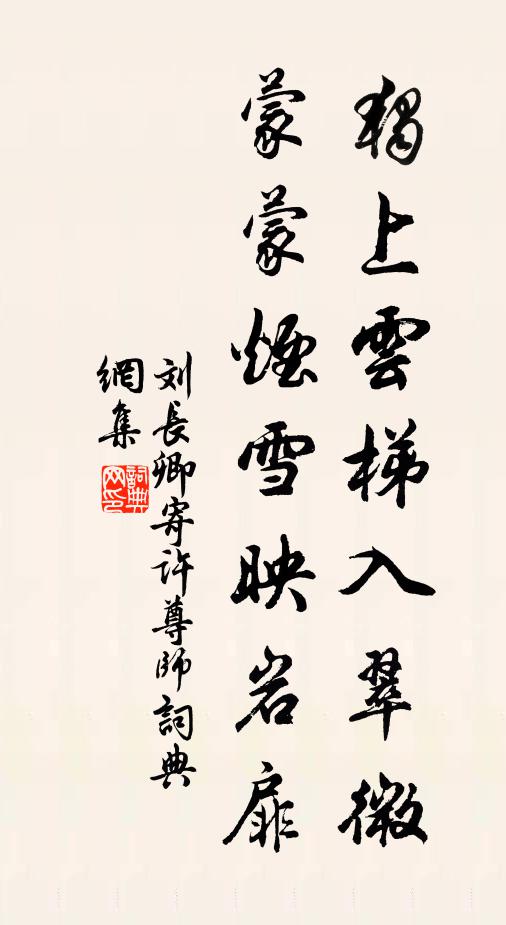 獨上雲梯入翠微
蒙蒙煙雪映岩扉
刘長卿寄許尊師詞典
網集
詞典網印